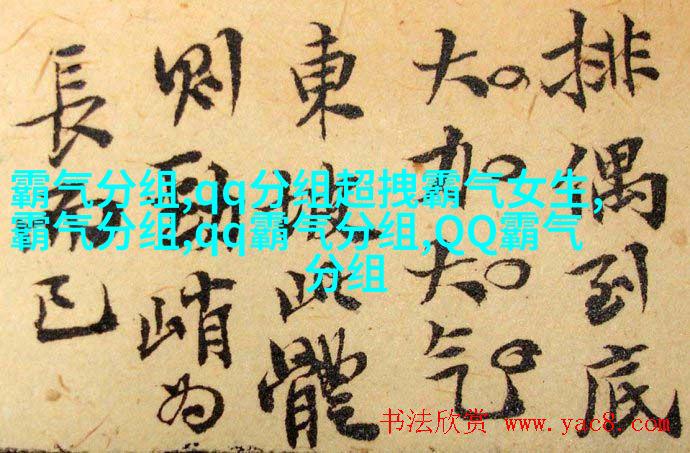 排偶到底
大 大气
東 此體
则 峭为
長 已
霸气分组,qq分组超拽霸气女生,
霸气分组,qq霸气分组,QQ霸气
分组
书法欣赏 www.yac8.com